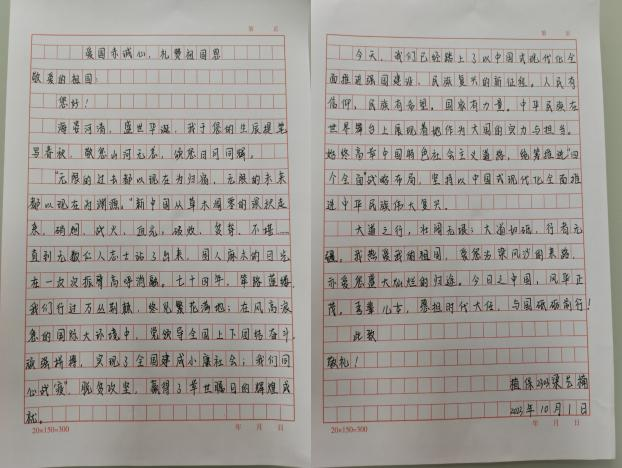 第 页
爱国赤诚心，礼赞祖国恩
敬爱的祖国：
您好！
海晏河清，盛世华诞，我于您的生辰提笔
写春秋，敬您山河无恙，颂您日月同辉。
“无限的过去都以现在为归宿，无限的未来
都以现在为渊源。”新中国从草木凋零的
来，硝烟、战火、血光、贫穷、不堪……
直到无数仁人志士站了出来，国人麻木的目光
在一次次振臂高呼消融。七十四年，筚路蓝缕，
我们行过万丛荆棘，终见繁花满地；在风高浪
急的国际大环境中，党领导全国上下团结奋斗，
顽强拼搏，实现了全国建成小康社会；我们同
心战“疫”，脱贫攻坚，赢得了举世瞩目的辉煌成
就。
20×150=300 年 月 日
第 页
今天，我们已经踏上了以中国式现代化全
面推进强国建设、民族复兴的新征程。人民有
信仰，民族有希望，国家有力量。中华民族在
世界舞台上展现着她作为大国的实力与担当。
始终高举中国特色社会主义道路，统筹推进“四
个全面”战略布局，坚持以中国式现代化全面推
进中华民族伟大复兴。
大道之行，壮阔无垠；大道如砥，行者无
疆。我热爱我的祖国，爱您古梁风沙的来路，
亦爱您盛大灿烂的归途。今日之中国，风华正
茂。吾辈儿女，愿担时代大任，与国砥砺前行！
此致
敬礼！
植保
2023年10月1日
20×150=300 年 月 日